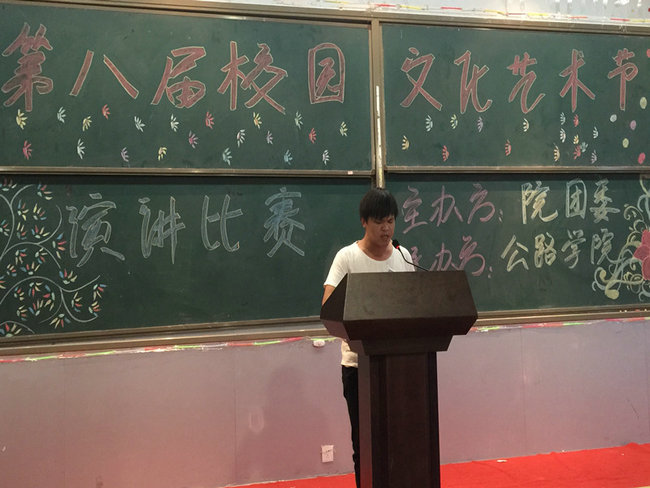 第八届校园文化艺术节
演讲比赛
主办方:院团委
办方:公路学院